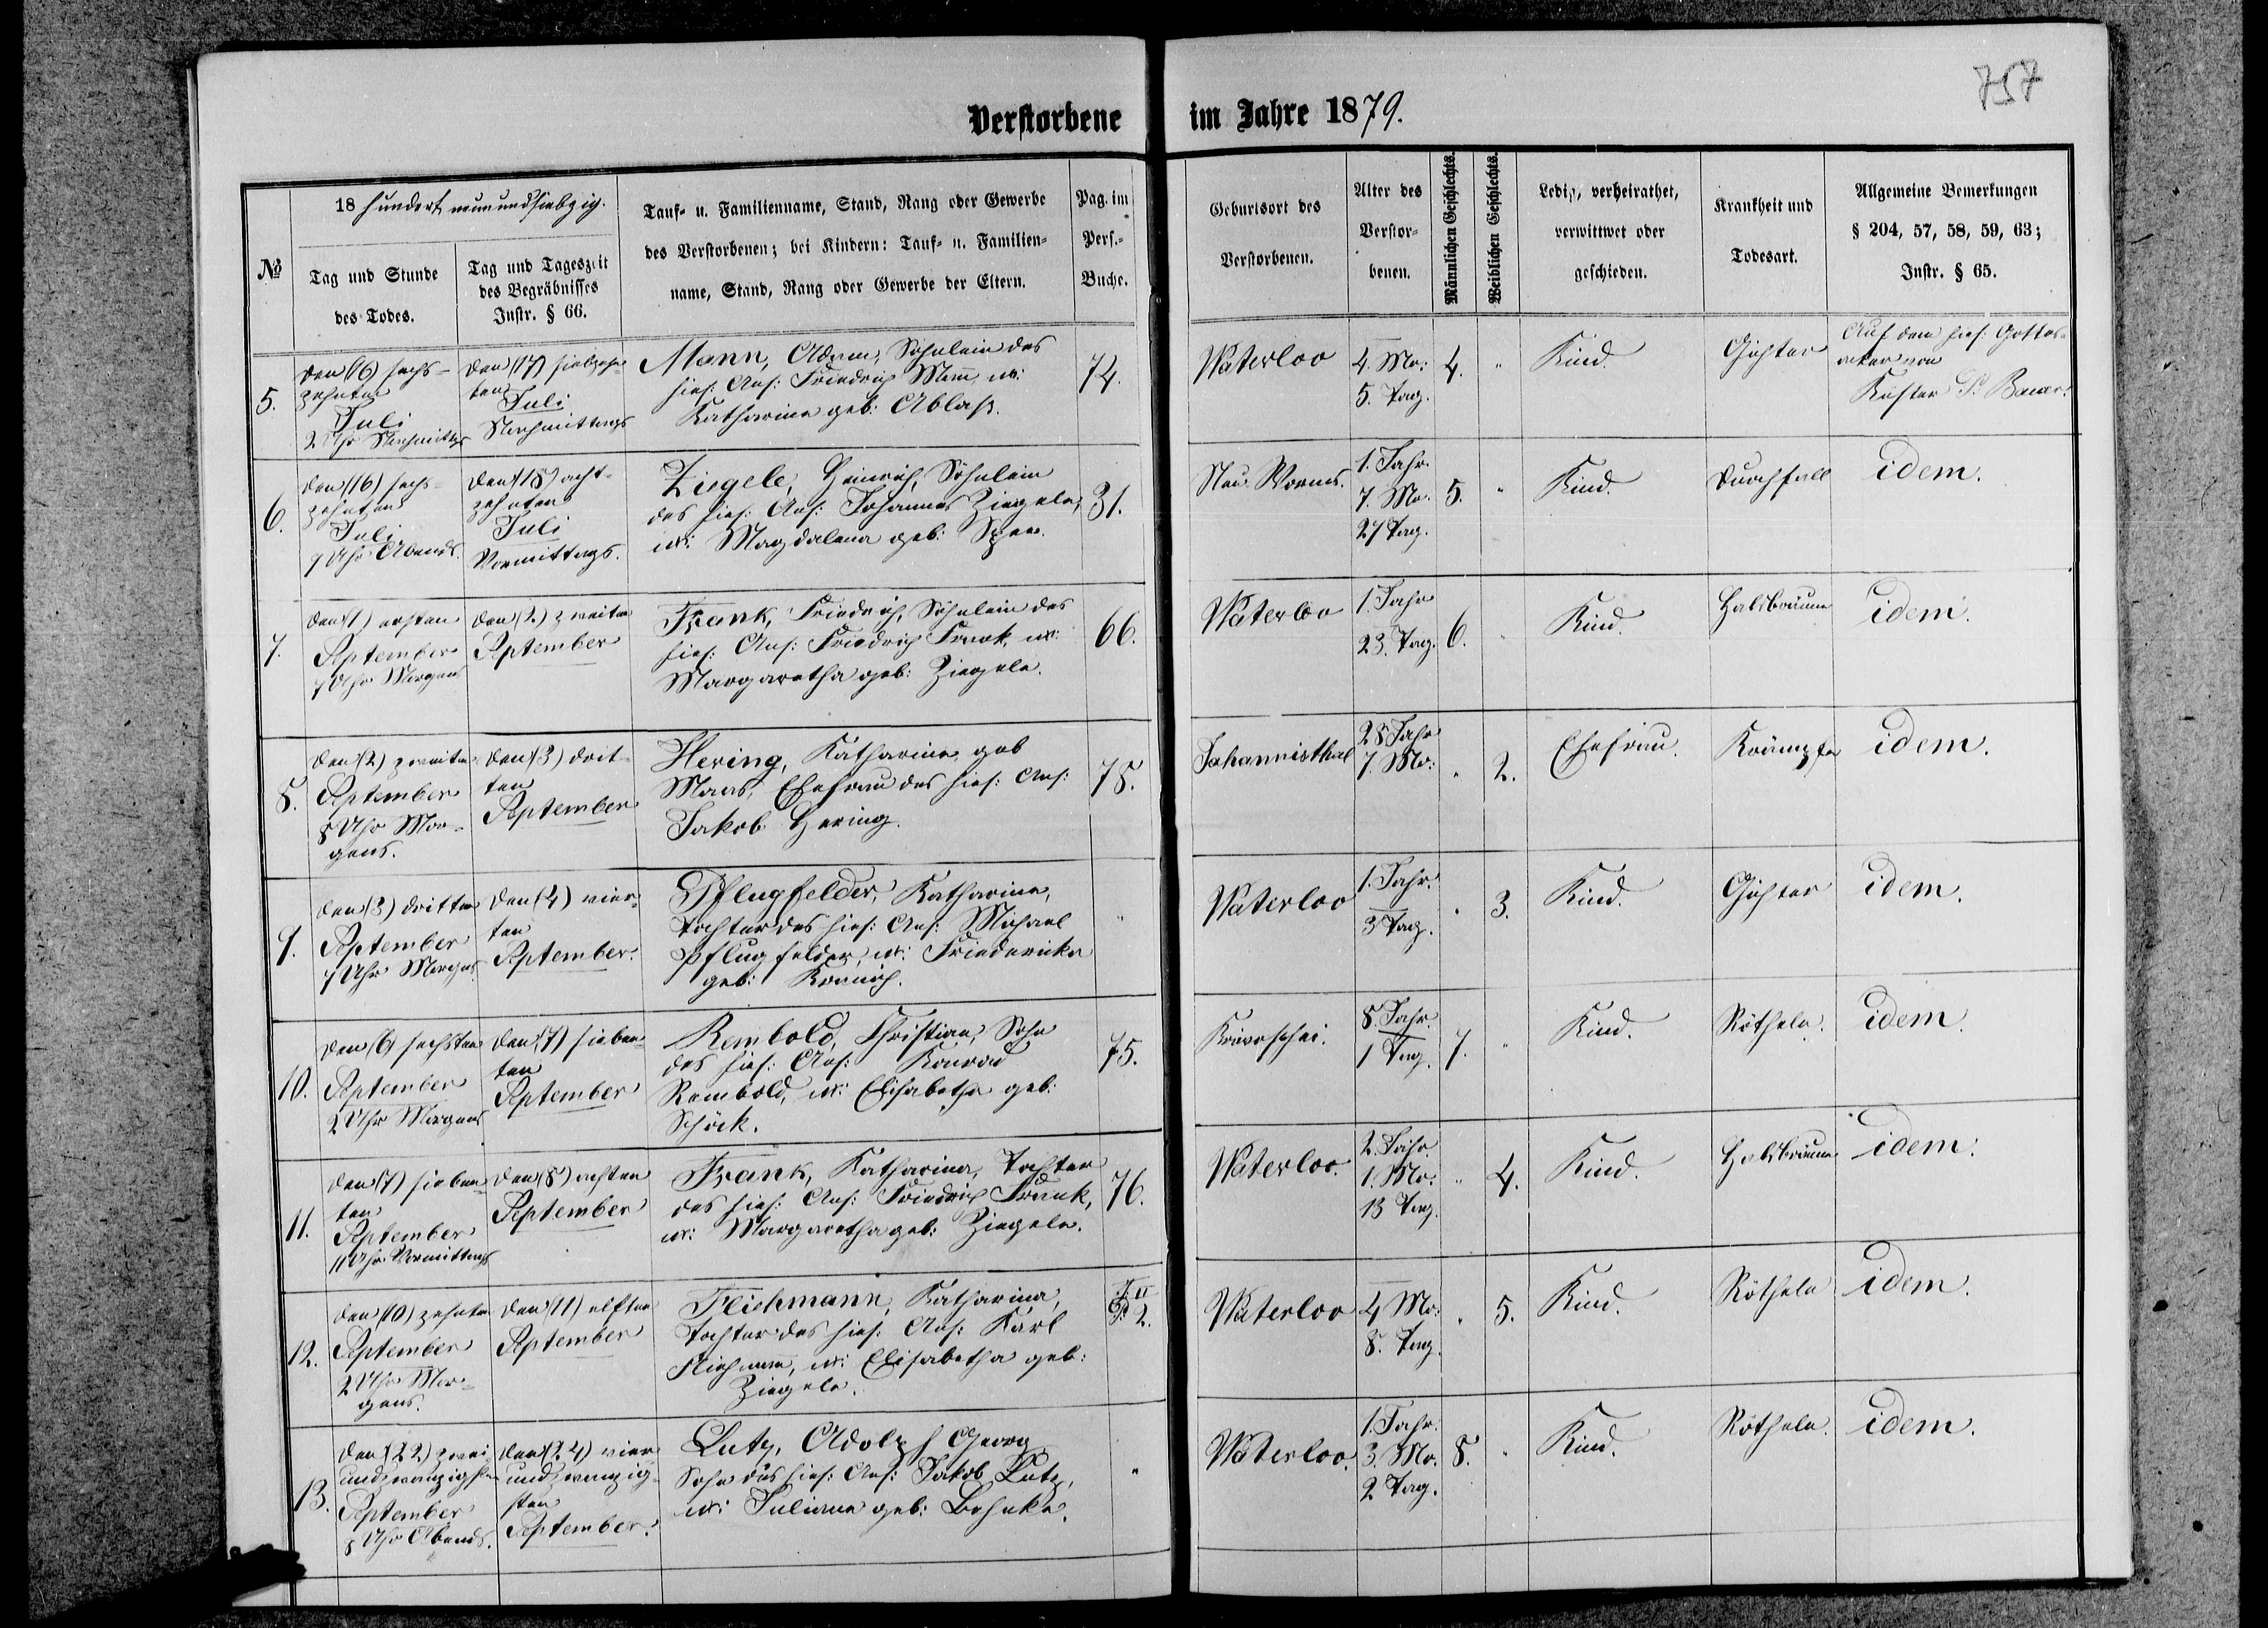 757
Verstorbene im Jahre 1879.
№
18 hundert neunundsiebzig.
Tag und Stunde
des Todes.
Tag und Tageszeit
des Begräbnisses
Instr. § 66.
Tauf- u. Familienname, Stand, Rang oder Gewerbe
des Verstorbenen; bei Kindern: Tauf- u. Familien-
name, Stand, Rang oder Gewerbe der Eltern.
Pag. im
Pers.-
Buche.
Geburtsort des
Verstorbenen.
Alter des
Verstor-
benen.
Männlichen Geschlechts.
Weiblichen Geschlechts.
Ledig, verheirathet,
verwittwet oder
geschieden.
Krankheit und
Todesart.
Allgemeine Bemerkungen
§ 204, 57, 58, 59, 63;
Instr. § 65.
5.
den (16) sechs-
zehnten
Juli
2 Uhr Nachmittgs
den (17) siebzehn-
ten Juli
Nachmittags
Mann, Adam, Söhnlein des
hies: Ans: Friedrich Mann, u:
Katharina geb: Ablaß.
74.
Waterloo
4. Mo:
5. Tag.
4.
"
Kind.
Gichter
Auf dem hies: Gottes-
acker von
Küster P. Bauer.
6.
den (16) sechs-
zehnten
Juli
9 Uhr Abends.
den (18) acht-
zehnten
Juli
Vormittags.
Ziegele, Heinrich, Söhnlein
des hies: Ans: Johannes Ziegele,
u: Magdalena geb:
31.
Neu-Worms.
1. Jahr.
7. Mo.
27 Tag.
5.
"
Kind.
Durchfall
idem.
7.
den (1) ersten
September
7 Uhr Morgens
den (2) zweiten
September
Frank, Friedrich, Söhnlein des
hies: Ans: Friedrich Frank, u:
Margaretha geb: Ziegele.
66.
Waterloo
1. Jahr
23. Tag.
6.
"
Kind.
Halsbräune
idem.
8.
den (2) zweiten
September
8 Uhr Mor-
gens.
den (3) drit-
ten
September
Hering, Katharina geb
Maas, Ehefrau des hies: Ans:
Jakob Hering.
78.
Johannisthal
28 Jahr
7. Mo:
"
2.
Ehefrau.
Krämpfe
idem.
9.
den (3) dritten
September
7 Uhr Morgens
den (4) vier-
ten
September.
Pflugfelder, Katharina,
Tochter des hies: Ans: Michael
Pflugfelder, u: Friedericka
geb:
"
Waterloo
1. Jahr.
3 Tag.
"
3.
Kind.
Gichter
idem.
10.
den (6) sechsten
September
2 Uhr Morgens
den (7) sieben-
ten
September
Rembold, Christian, Sohn
des hies: Ans: Konrad
Rembold, u: Elisabetha geb:
Schöck.
75.
8. Jahr.
1 Tag.
7.
"
Kind.
Rötheln.
idem.
11.
den (7) sieben-
ten
September
11 Uhr Vormittags
den (8) achten
September
Frank, Katharina, Tochter
des hies: Ans: Friedrich Frank,
u: Margaretha geb: Ziegele.
76.
Waterloo.
2. Jahr.
1. Mo.
13 Tag.
"
4.
Kind.
Halsbräune
idem.
12.
den (10) zehnten
September
2 Uhr Mor-
gens.
den (11) elften
September
Fliehmann, Katharina,
Tochter des hies: Ans: Karl
Fliehmann, u: Elisabetha geb:
Ziegele.
II
2.
Waterloo
4 Mo.
8. Tag.
"
5.
Kind.
Rötheln
idem.
13.
den (22) zwei
undzwanzigsten
September
8 Uhr Abends.
den (24) vier
undzwanzig-
sten
September.
Lutz, Adolph Georg
Sohn des hies: Ans: Jakob Lutz,
u: Juliana geb: Behnke.
"
Waterloo.
1. Jahr.
3. Mo.
2 Tag.
8.
"
Kind.
Rötheln.
idem.